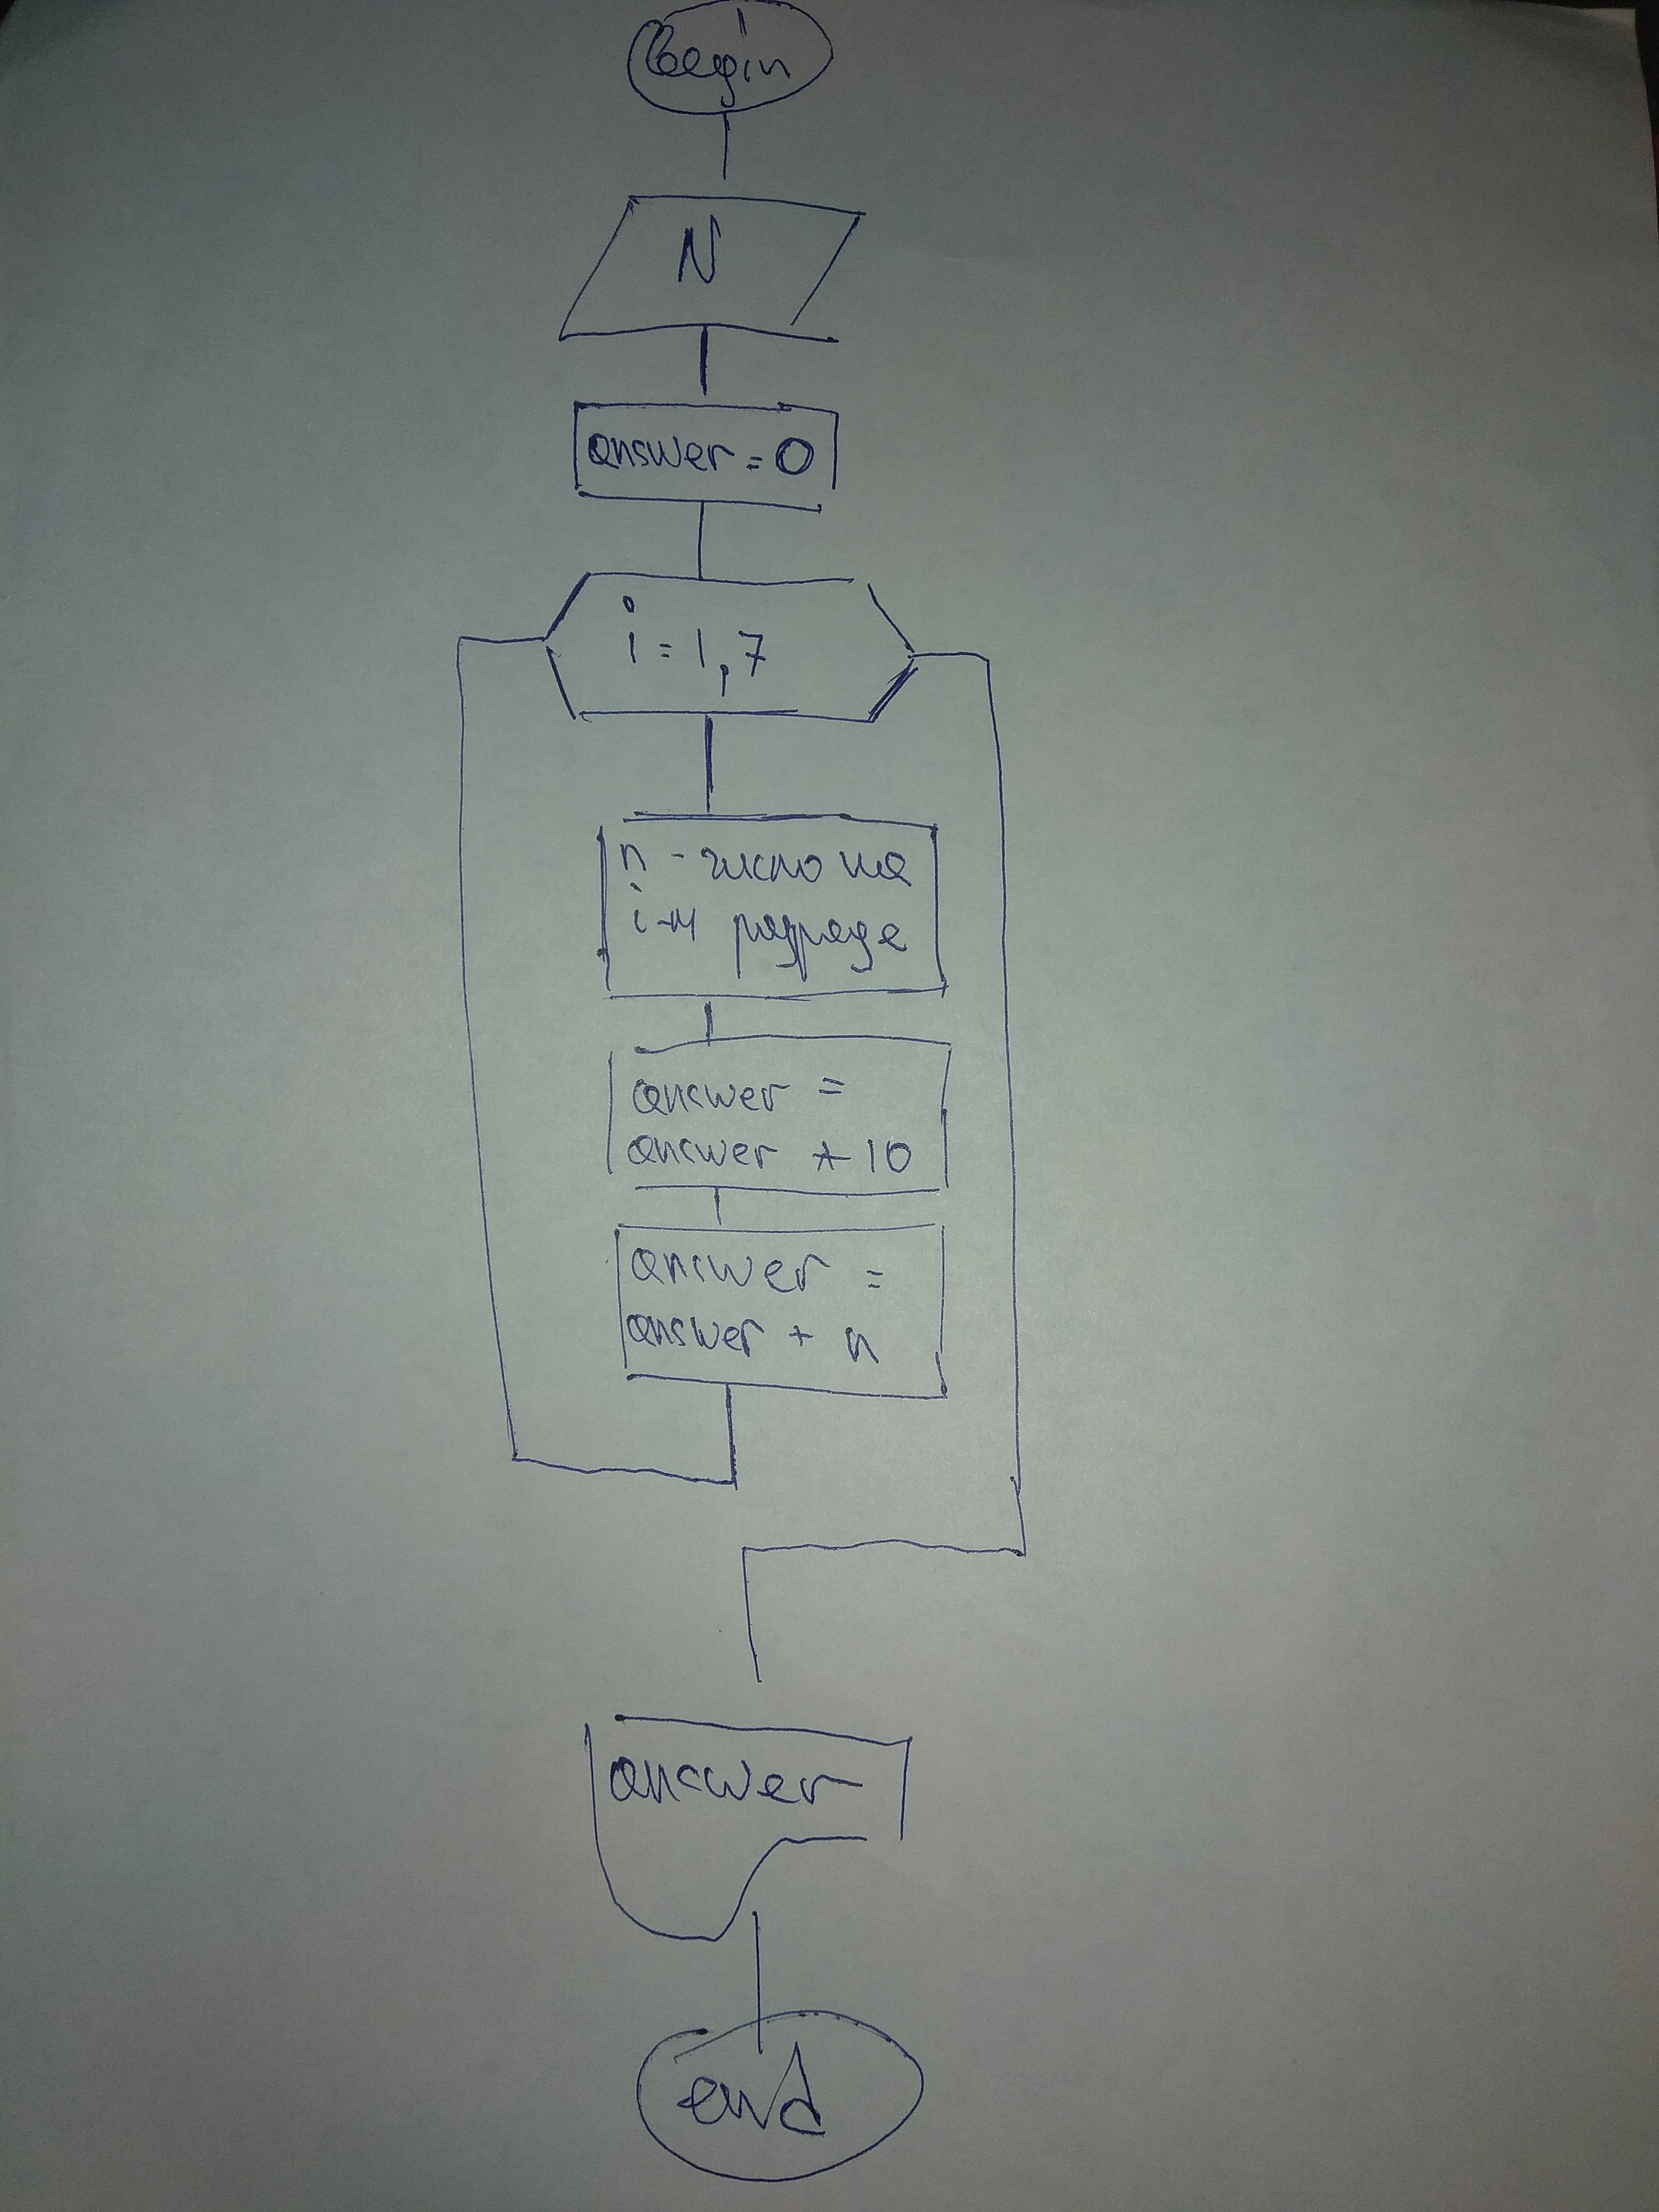 begin
N
answer = 0
i = 1,7
n - число на
i-м разряде
answer =
answer * 10
answer =
answer + n
answer
end